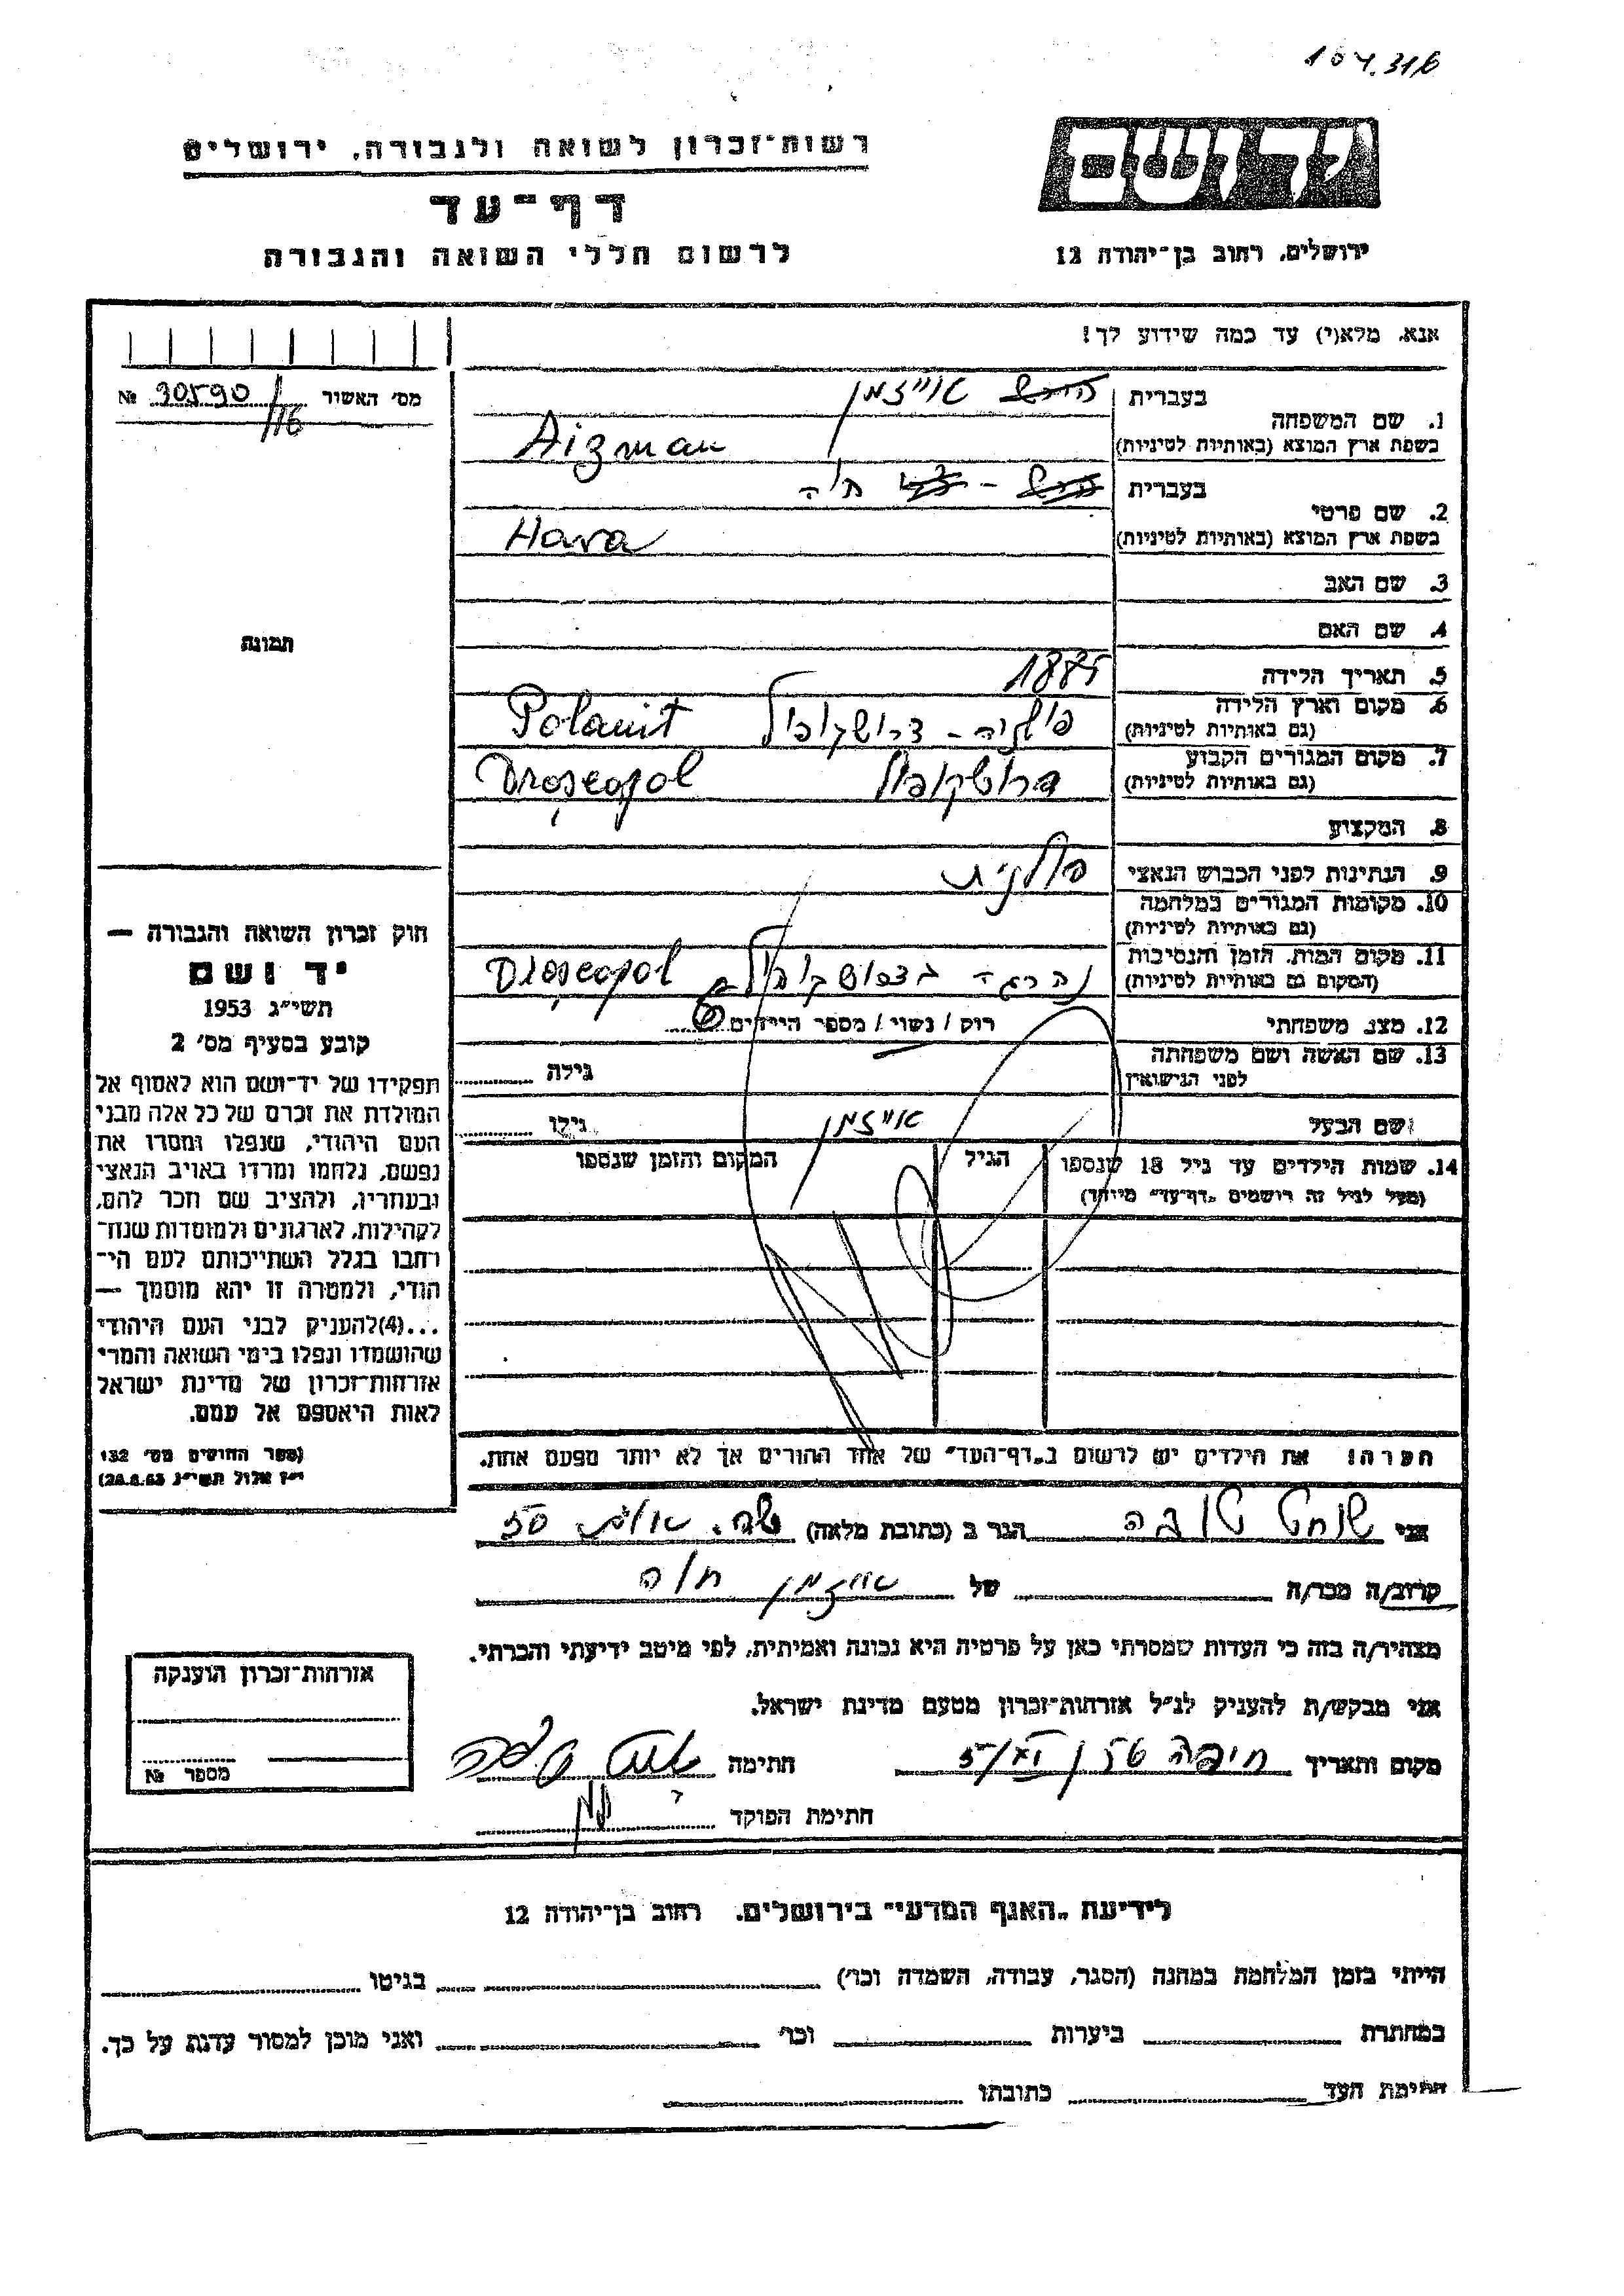 104.316
יד ושם
רשות־זכרון לשואה ולגבורה, ירושלים
דף־עד
לרשום חללי השואה והגבורה
ירושלים, רחוב בן־יהודה 12
אנא, מלא(י) עד כמה שידוע לך!
מס׳ האשור 30590/116 №
1. שם המשפחה
בעברית אייזמן
בשפת ארץ המוצא (באותיות לטיניות) Aizman
2. שם פרטי
בעברית חוה
בשפת ארץ המוצא (באותיות לטיניות) Hava
3. שם האב
4. שם האם
תמונה
5. תאריך הלידה 1885
6. מקום וארץ הלידה
(גם באותיות לטיניות) פולניה - דרושקופול Polanit
7. מקום המגורים הקבוע
(גם באותיות לטיניות) דרושקופול Droseopol
8. המקצוע
9. הנתינות לפני הכבוש הנאצי פולנית
10. מקומות המגורים במלחמה
(גם באותיות לטיניות)
11. מקום המות, הזמן והנסיבות
(המקום גם באותיות לטיניות) נהרגה בדרושקופול Droseopol
12. מצב משפחתי רוק / נשוי / מספר הילדים 6
13. שם האשה ושם משפחתה
לפני הנישואין גילה
שם הבעל אייזמן גילו
14. שמות הילדים עד גיל 18 שנספו
(מעל לגיל זה רושמים „דף־עד״ מיוחד)
הגיל
המקום והזמן שנספו
חוק זכרון השואה והגבורה —
יד ושם
תשי״ג 1953
קובע בסעיף מס׳ 2
תפקידו של יד־ושם הוא לאסוף אל
המולדת את זכרם של כל אלה מבני
העם היהודי, שנפלו ומסרו את
נפשם, נלחמו ומרדו באויב הנאצי
ובעוזריו, ולהציב שם וזכר להם,
לקהילות, לארגונים ולמוסדות שנח־
רבו בגלל השתייכותם לעם הי־
הודי, ולמטרה זו יהא מוסמך —
...(4)להעניק לבני העם היהודי
שהושמדו ונפלו בימי השואה והמרי
אזרחות־זכרון של מדינת ישראל
לאות היאספם אל עמם.
(ספר החוקים מס׳ 132
י״ז אלול תשי״ג 28.8.53)
הערה! את הילדים יש לרשום ב„דף־העד״ של אחד ההורים אך לא יותר מפעם אחת.
אני שוחט טובה הגר ב (כתובת מלאה) 50
קרוב/ה מכר/ה של אייזמן חוה
מצהיר/ה בזה כי העדות שמסרתי כאן על פרטיה היא נכונה ואמיתית, לפי מיטב ידיעתי והכרתי.
אני מבקש/ת להעניק לנ״ל אזרחות־זכרון מטעם מדינת ישראל.
מקום ותאריך חיפה חתימה
חתימת הפוקד
אזרחות־זכרון הוענקה
מספר №
לידיעת „האגף המדעי״ בירושלים, רחוב בן־יהודה 12
הייתי בזמן המלחמה במחנה (הסגר, עבודה, השמדה וכו׳) בגיטו
במחתרת ביערות וכו׳ ואני מוכן למסור עדות על כך.
חתימת העד כתובתו